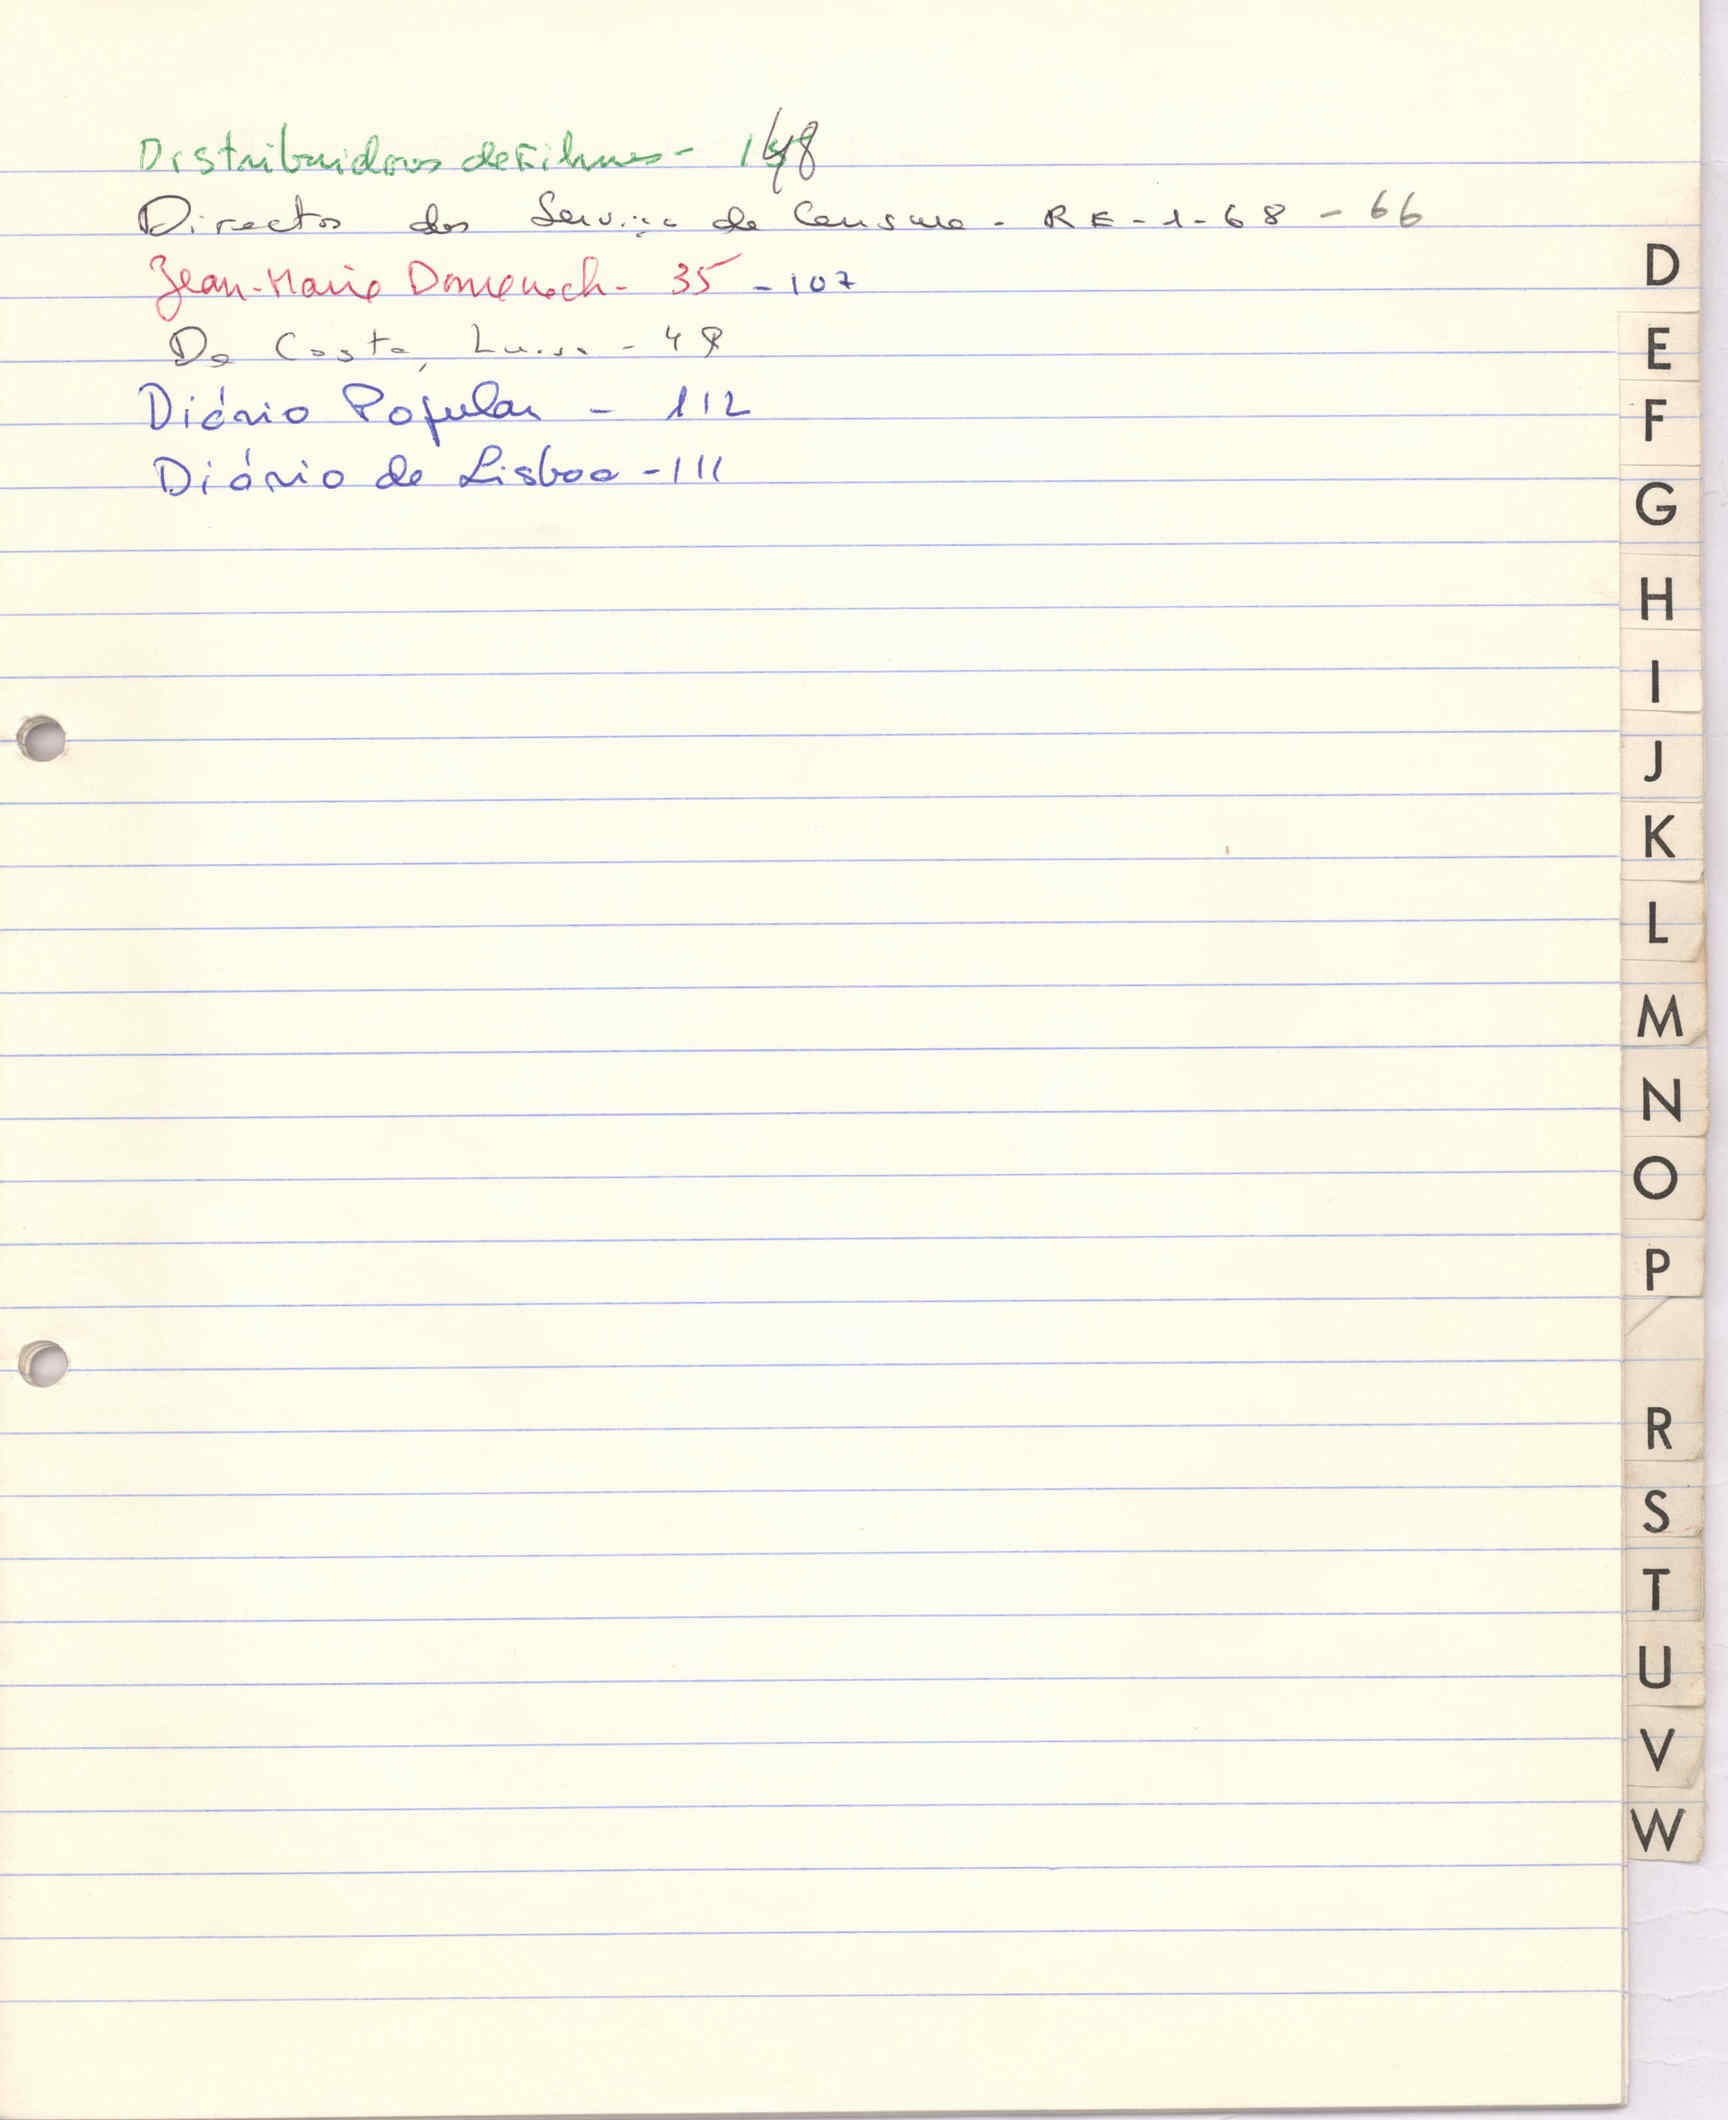 Distribuidores de Filmes - 148
Director dos Serviços de Censura - RE - 1 - 68 - 66
Jean-Marie Domenach - 35 - 107
Da Costa, Luísa - 48
Diário Popular - 112
Diário de Lisboa - 111
D
E
F
G
H
I
J
K
L
M
N
O
P
R
S
T
U
V
W